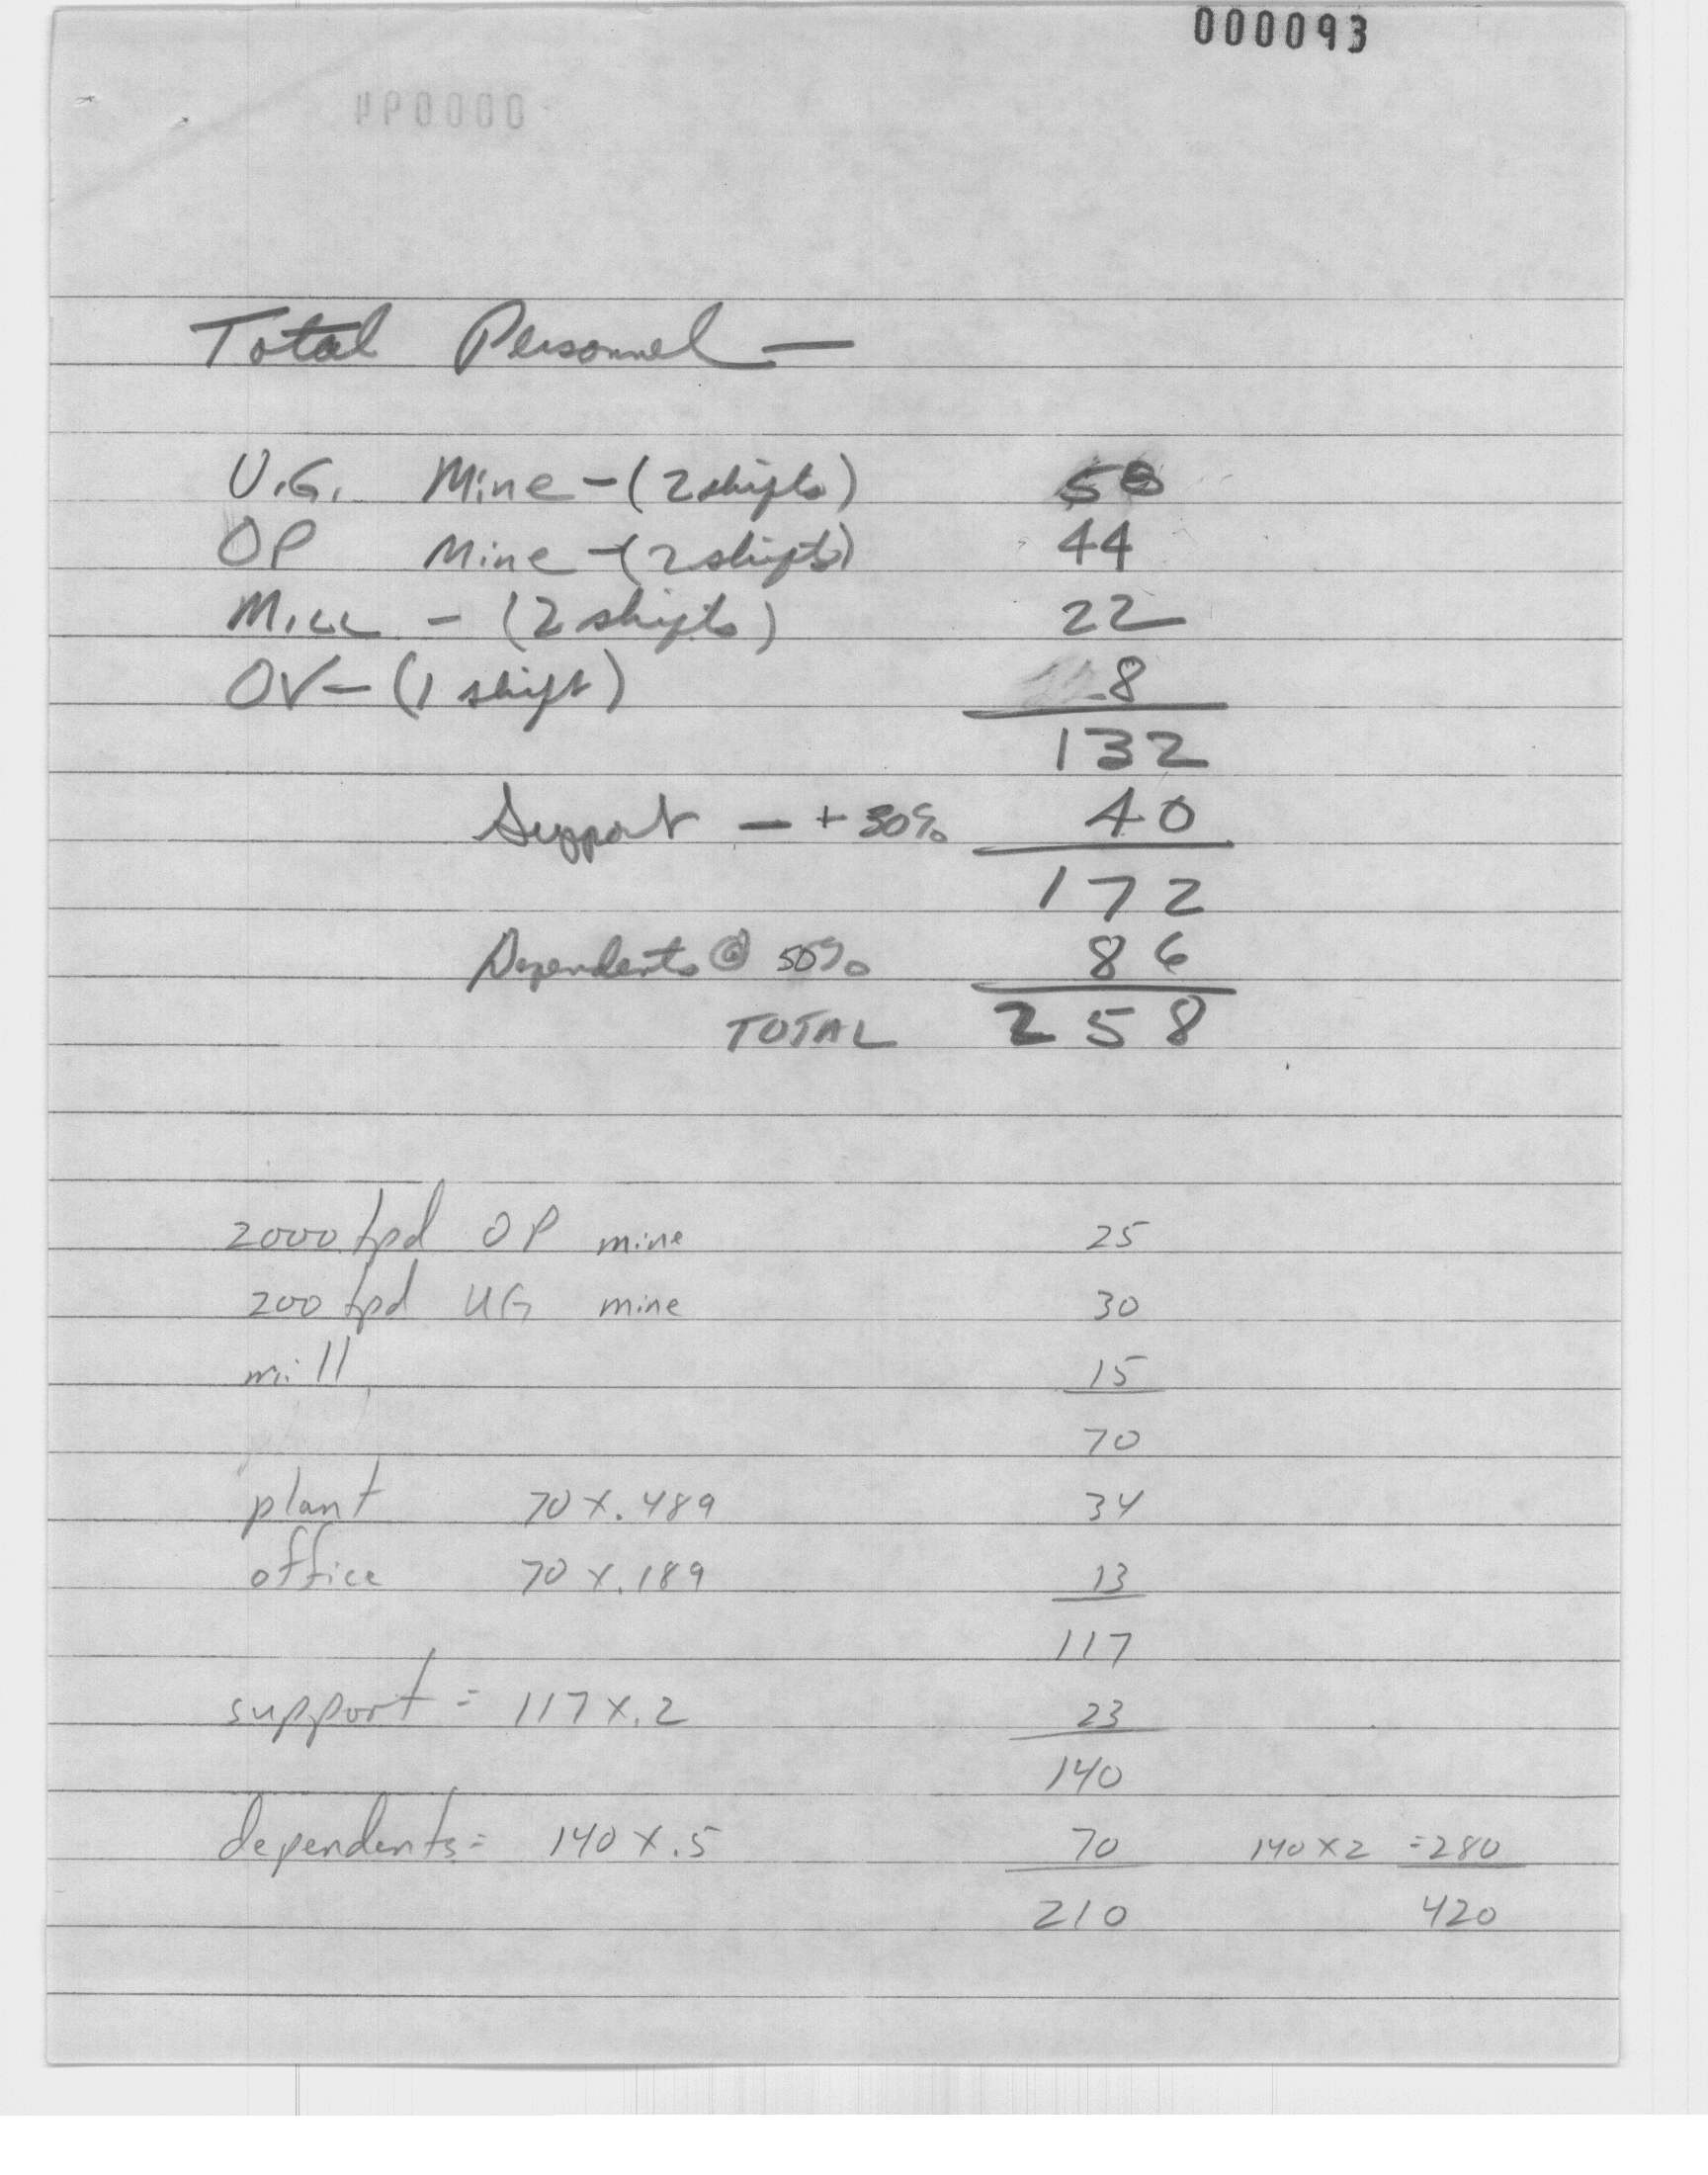 000093
Total Personnel —
U.G. Mine - (2 shifts) 58
OP Mine - (2 shifts) 44
MILL - (2 shifts) 22
OV - (1 shift) 8
132
Support — + 30% 40
172
Dependents @ 50% 86
TOTAL 258
2000 tpd OP mine 25
200 tpd UG mine 30
mill 15
70
plant 70 x .489 34
office 70 x .189 13
117
support = 117 x .2 23
140
dependents = 140 x .5 70 140 x 2 = 280
210 420